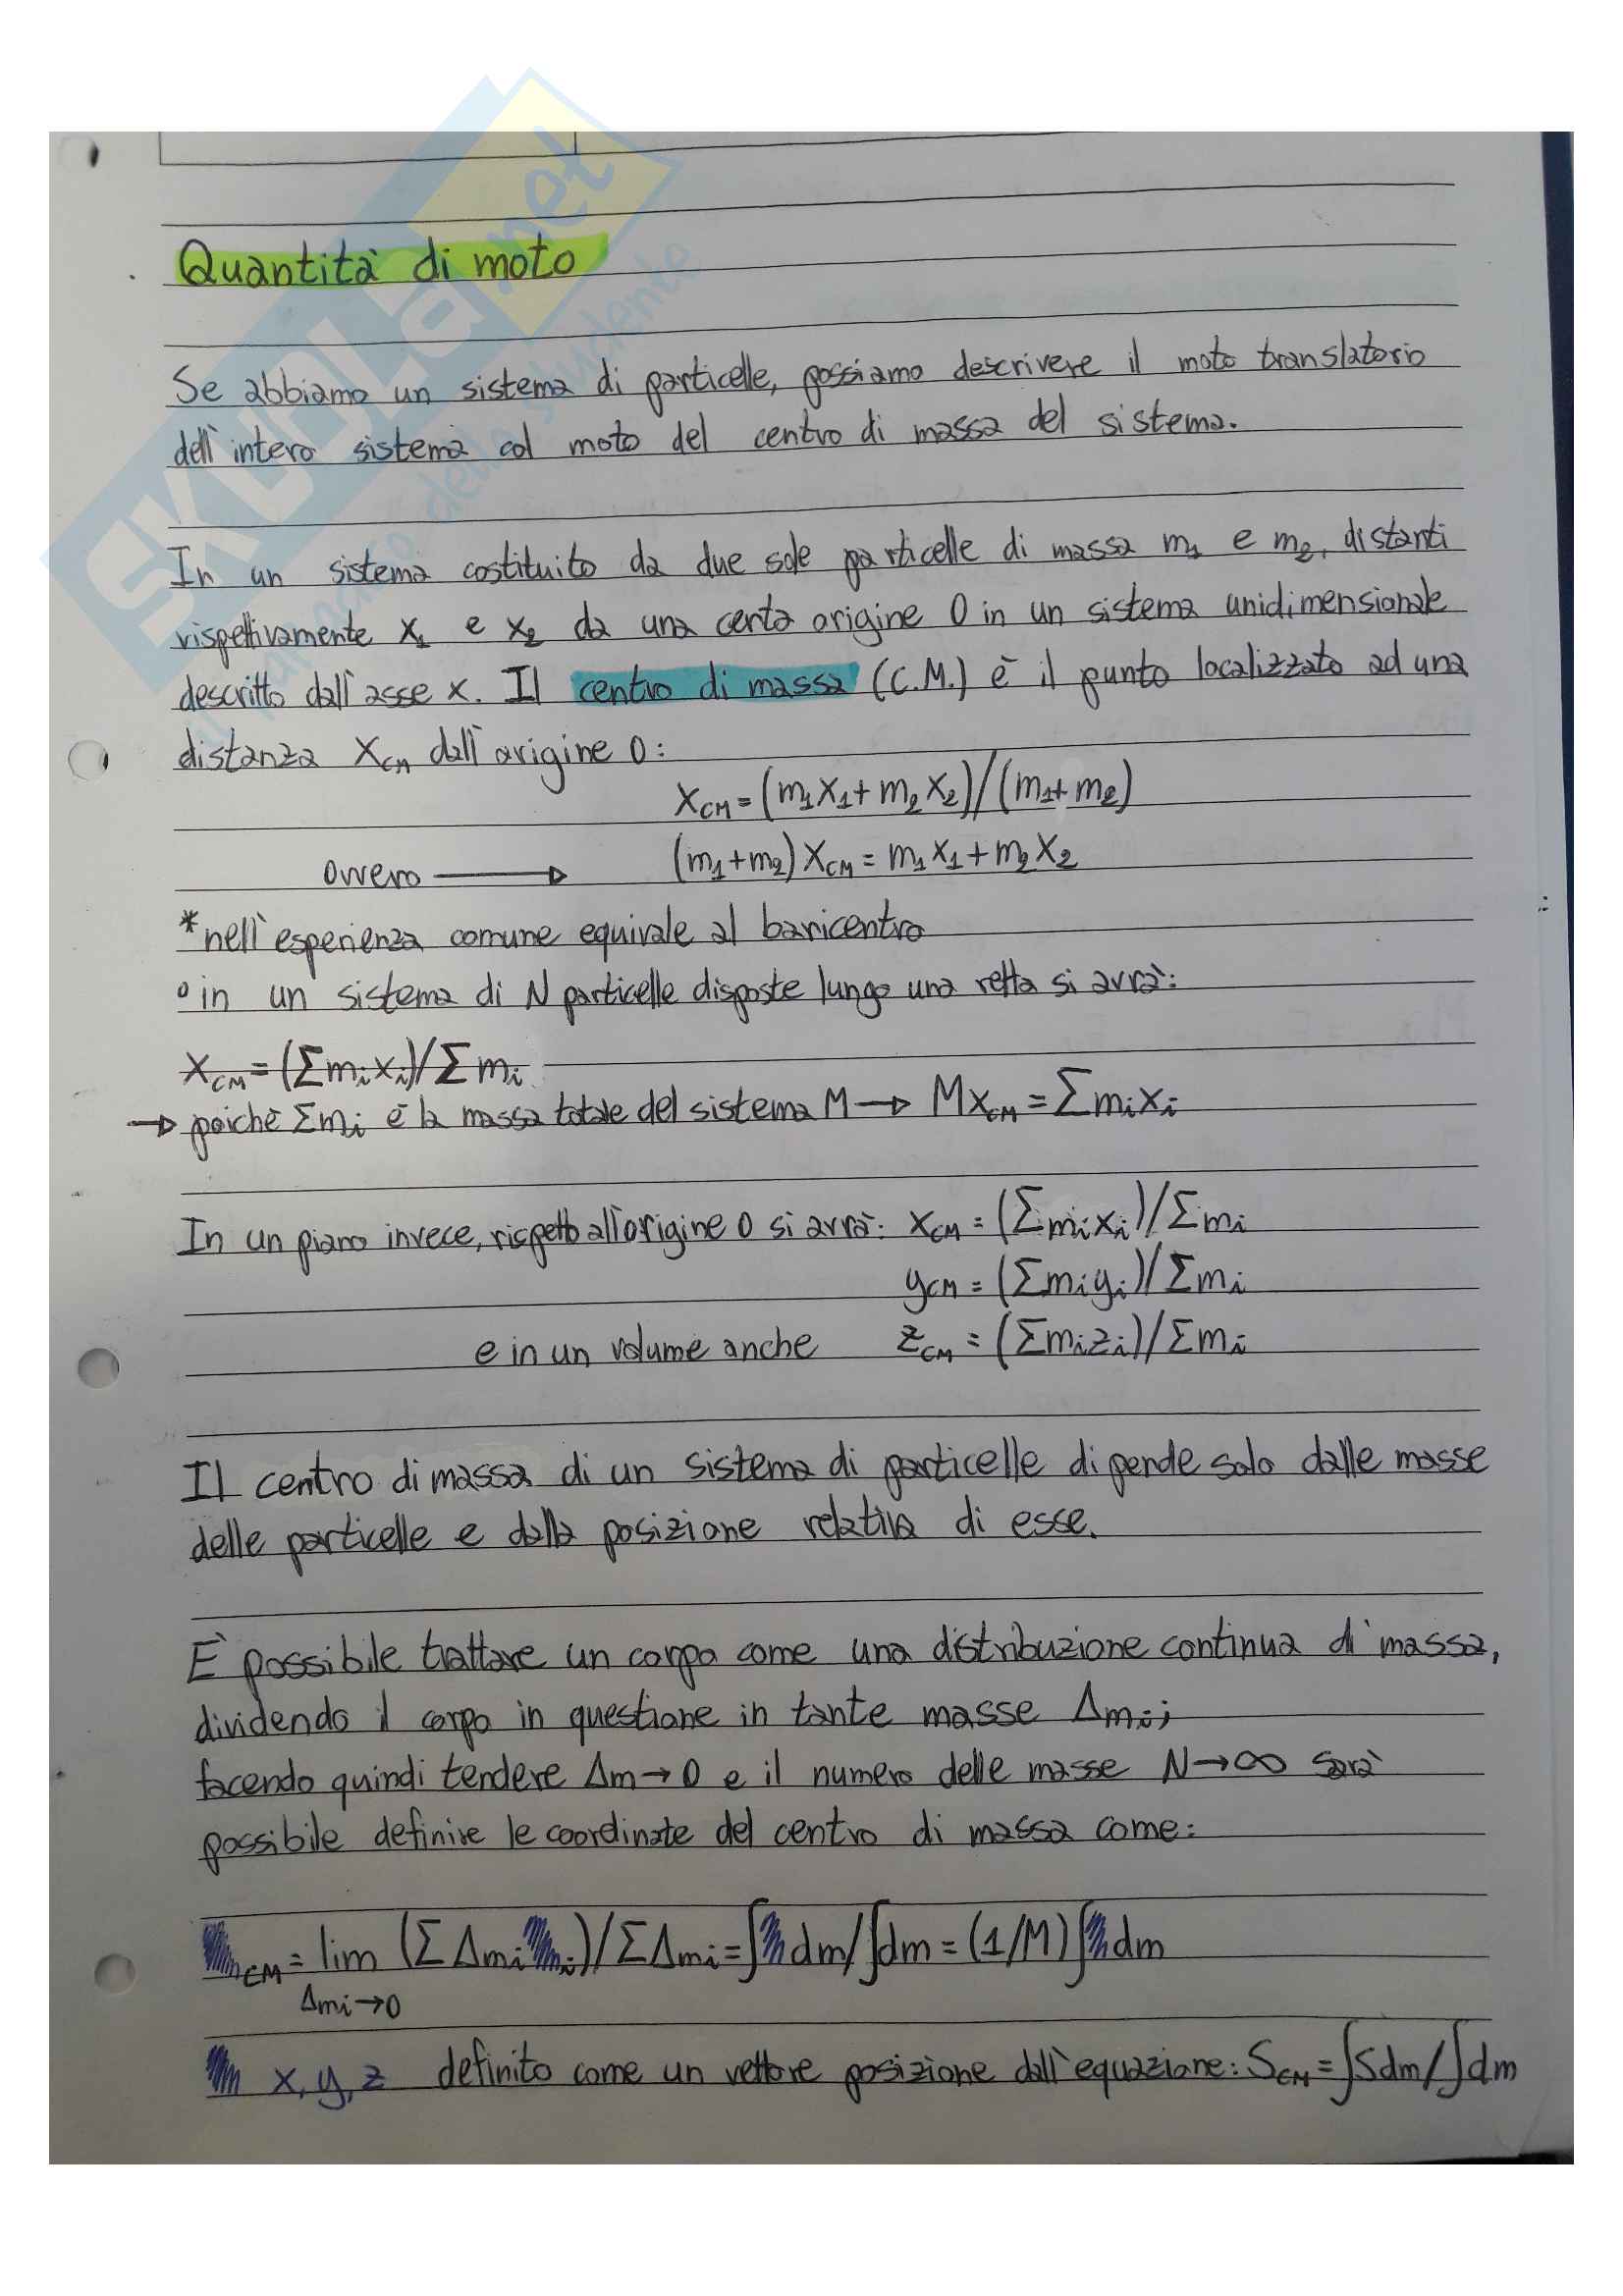 Quantità di moto
Se abbiamo un sistema di particelle, possiamo descrivere il moto translatorio
dell'intero sistema col moto del centro di massa del sistema.
In un sistema costituito da due sole particelle di massa m₁ e m₂, distanti
rispettivamente x₁ e x₂ da una certa origine O in un sistema unidimensionale
descritto dall'asse x. Il centro di massa (C.M.) è il punto localizzato ad una
distanza X_CM dall'origine O:
X_CM = (m₁X₁ + m₂X₂)/(m₁ + m₂)
Ovvero → (m₁+m₂) X_CM = m₁X₁ + m₂X₂
*nell'esperienza comune equivale al baricentro
° in un sistema di N particelle disposte lungo una retta si avrà:
X_CM = (Σm_i x_i)/Σm_i
→ poichè Σm_i è la massa totale del sistema M → M X_CM = Σm_i x_i
In un piano invece, rispetto all'origine O si avrà: X_CM = (Σm_i x_i)/Σm_i
y_CM = (Σm_i y_i)/Σm_i
e in un volume anche z_CM = (Σm_i z_i)/Σm_i
Il centro di massa di un sistema di particelle dipende solo dalle masse
delle particelle e dalla posizione relativa di esse.
E' possibile trattare un corpo come una distribuzione continua di massa,
dividendo il corpo in questione in tante masse Δm_i;
facendo quindi tendere Δm→0 e il numero delle masse N→∞ sarà
possibile definire le coordinate del centro di massa come:
CM = lim (ΣΔm_i _i)/ΣΔm_i = ∫ dm/∫dm = (1/M)∫ dm
Δm_i→0
x, y, z definito come un vettore posizione dall'equazione: S_CM = ∫Sdm/∫dm
SKUOLA.net